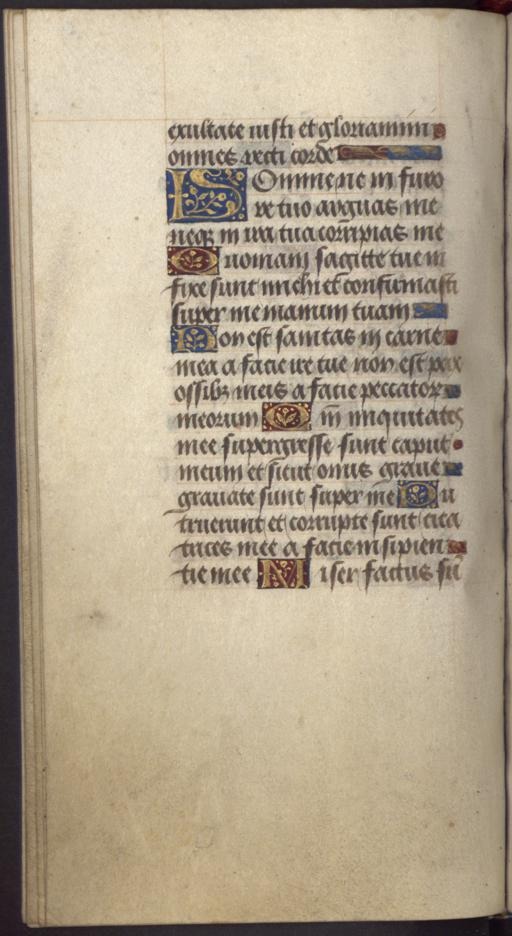 exultate iusti et gloriamini
omnes recti corde
DOmine ne in furo
re tuo arguas me
neq₃ in ira tua corripias me
Quoniam sagitte tue in
fixe sunt michi et confirmasti
super me manum tuam
Non est sanitas in carne
mea a facie ire tue non est pax
ossib₃ meis a facie peccatoꝝ
meorum Qm̄ iniquitates
mee supergresse sunt caput
meum et sicut onus graue
grauate sunt super me Pu
truerunt et corrupte sunt cica
trices mee a facie insipien
tie mee Miser factus sū